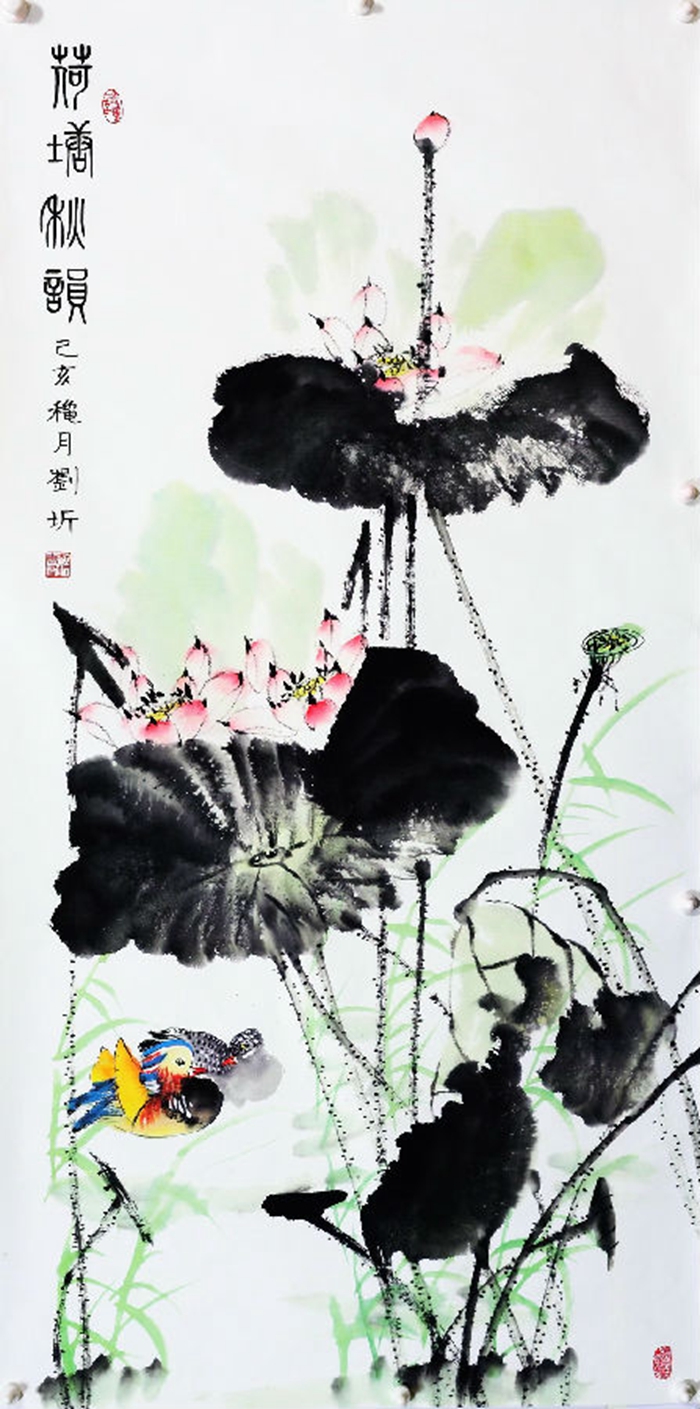 荷塘秋韻
己亥穐月劉圻